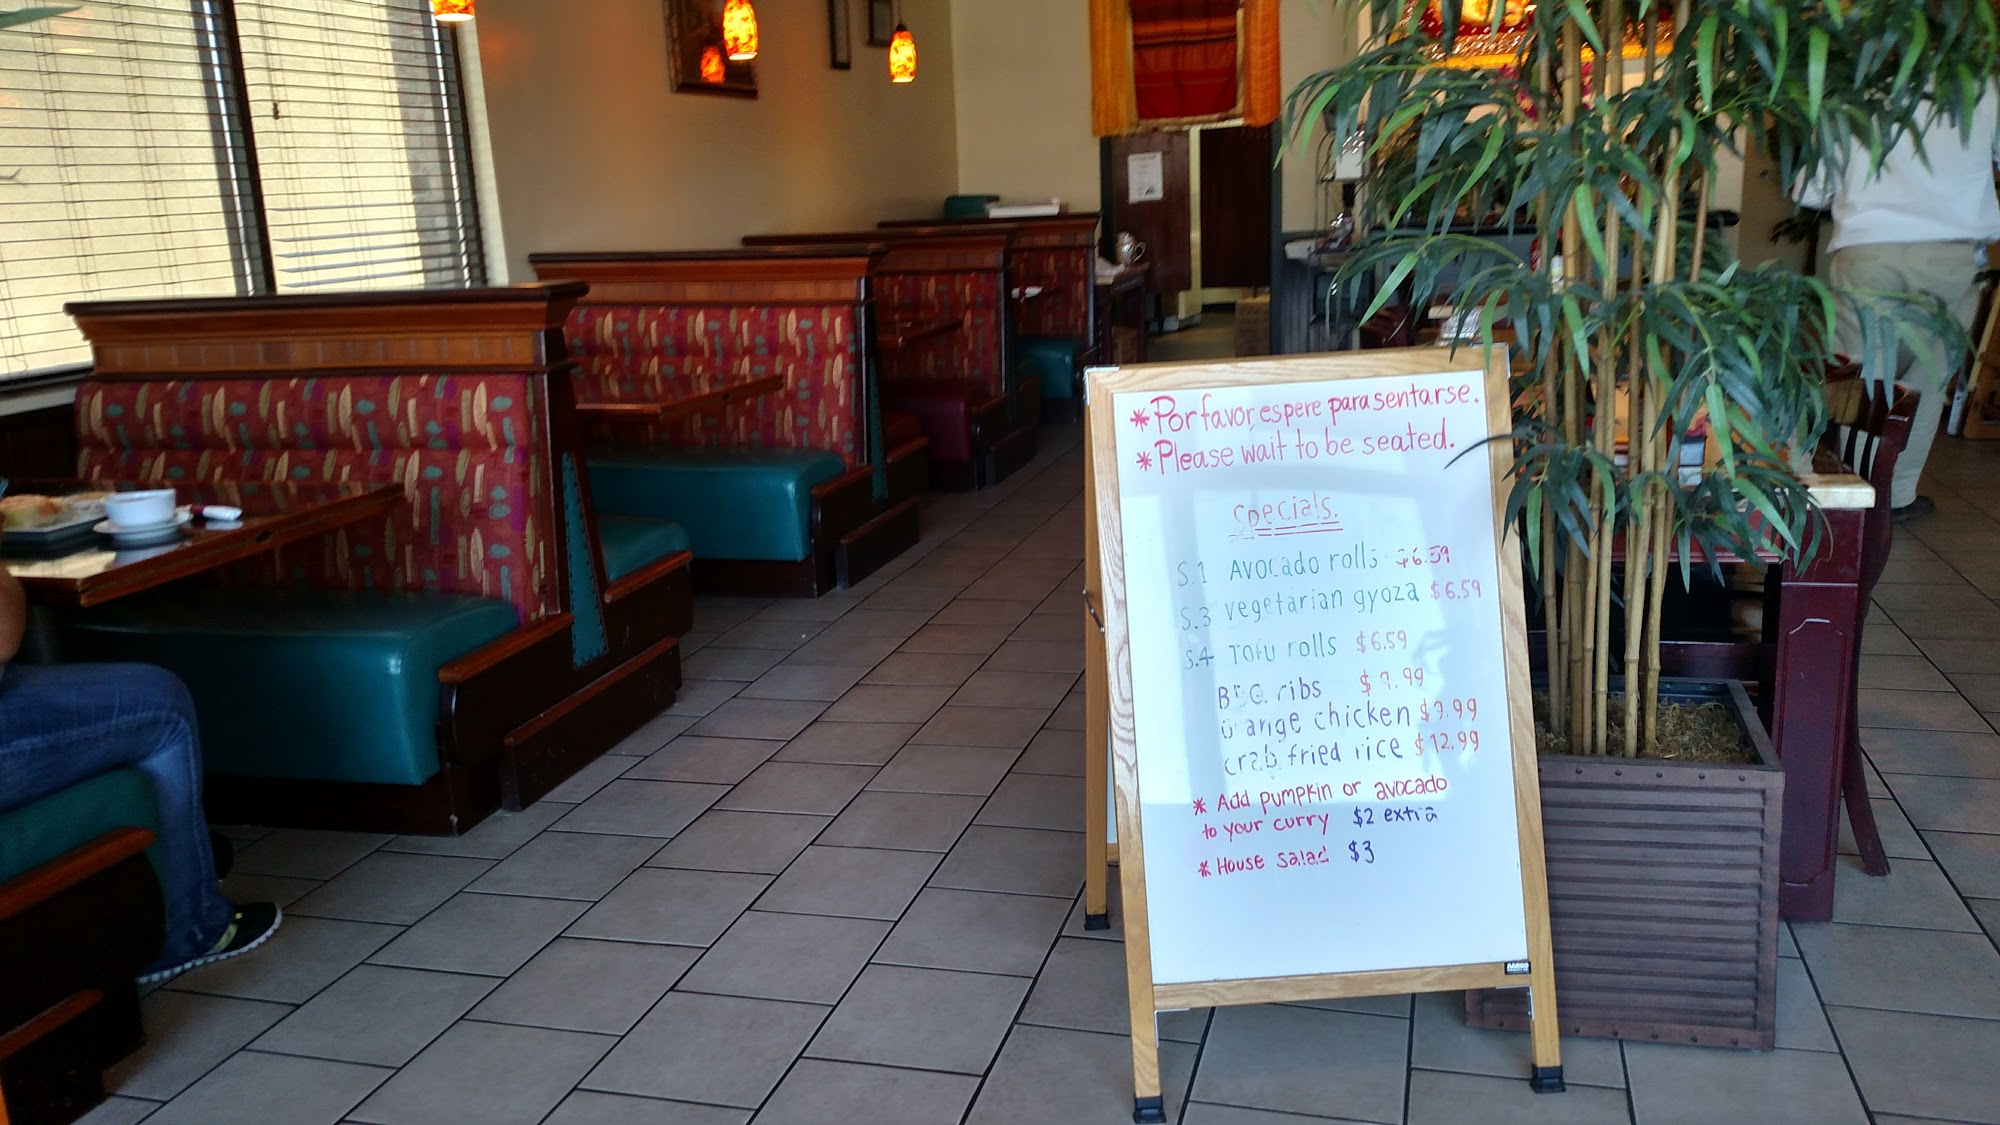 * Por favor, espere para sentarse.
* Please wait to be seated.
Specials.
S.1 Avocado rolls $6.59
S.3 vegetarian gyoza $6.59
S.4 Tofu rolls $6.59
BBQ. ribs $9.99
orange chicken $9.99
crab fried rice $12.99
* Add pumpkin or avocado
to your curry $2 extra
* House salad $3